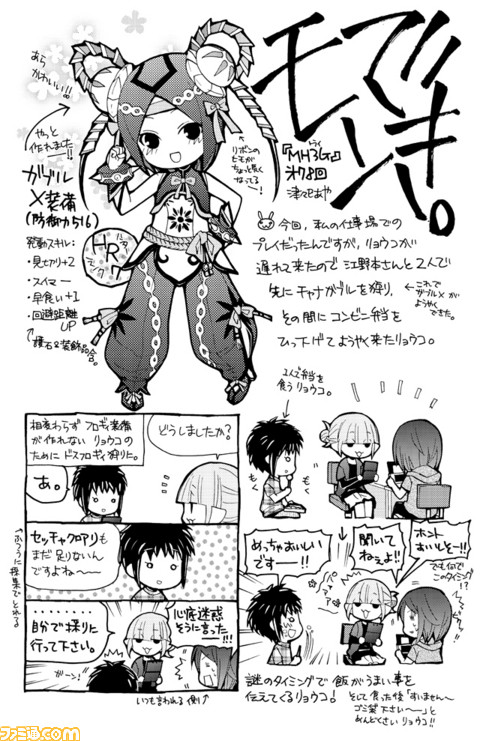 モンでき。
『MH3G』らく
津々巳あや
今回、私の仕事場での
プレイだったんですが、リョウコが
遅れて来たので江野本さんと2人で
先にチャナガブルを狩り、
その間にコンビニ弁当を
ひっ下げてようやく来たリョウコ。
←これで
ガブルXが
ようやく
できた。
あら
かわいい!!
やっと
作れました~!!
ガブル
X装備
(防御力516)
発動スキル:
・見切り+2
・スイマー
・早食い+1
・回避距離
UP
護石&装飾品含。
リボンの
ヒモが
ちょっと長く
なってる!
HR
2人で弁当を
食うリョウコ。
もぐ
もぐ
相変わらずフロギィ装備
が作れないリョウコの
ためにドスフロギィ狩りに。
どうしましたか?
あ。
セッチャクロアリも
まだ足りないん
ですよね~~
↑ふつうに採集でとれる
自分で採りに
行って下さい。
心底迷惑
そうに言った
ーー!!!
ガーン!
いつも言われる側
めっちゃおいしい
ですーー!!
聞いて
ねぇよ!!
ホント
おいしそー!!
でも何で
このタイミング
!?
謎のタイミングで飯がうまい事を
伝えてくるリョウコ!
そして食った後「すいませんー
ゴミ袋下さい~~」と
めんどくさいリョウコ!!
ファミ通.com